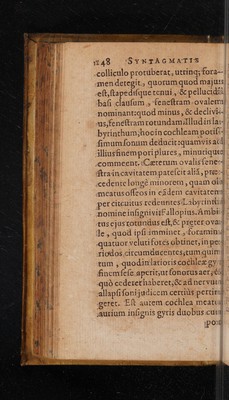 248 SYNTAGMATIS
colliculo protuberat, utrinq; fora-
men detegit, quorum quod majus
est, stapedisque tenui, & pellucidâ
basi clausum, fenestram ovalem
nominant: quod minus, & declivi-
us, fenestram rotundam. illud in la-
byrinthum; hoc in cochleam
simum sonum deducit: quamvis ad
illius finem pori plures, minutique
commeent. Cæterum ovalis fene-
stra in cavitatem patescit aliâ, præ-
cedente longè minorem, quam
meatus osseos in eâdem cavitatem
per circuitus redeuntes Labyrinthi
nomine insignivit Fallopius. Ambi-
tus ejos totundus est, & præter ova-
le, quod ipsi imminet, foramina
quatuor veluti fotes obtinet, in pe-
riodos circumducentes, tum quin-
tum, quod in latioris cochleæ gy-
finem sese aperit, ut sonorus aer,
quò redeet haberet, & ad nervum
allapsi soni judicem certiùs pertin-
geret. Est autem cochlea meatus
aurium insignis gyris duobus